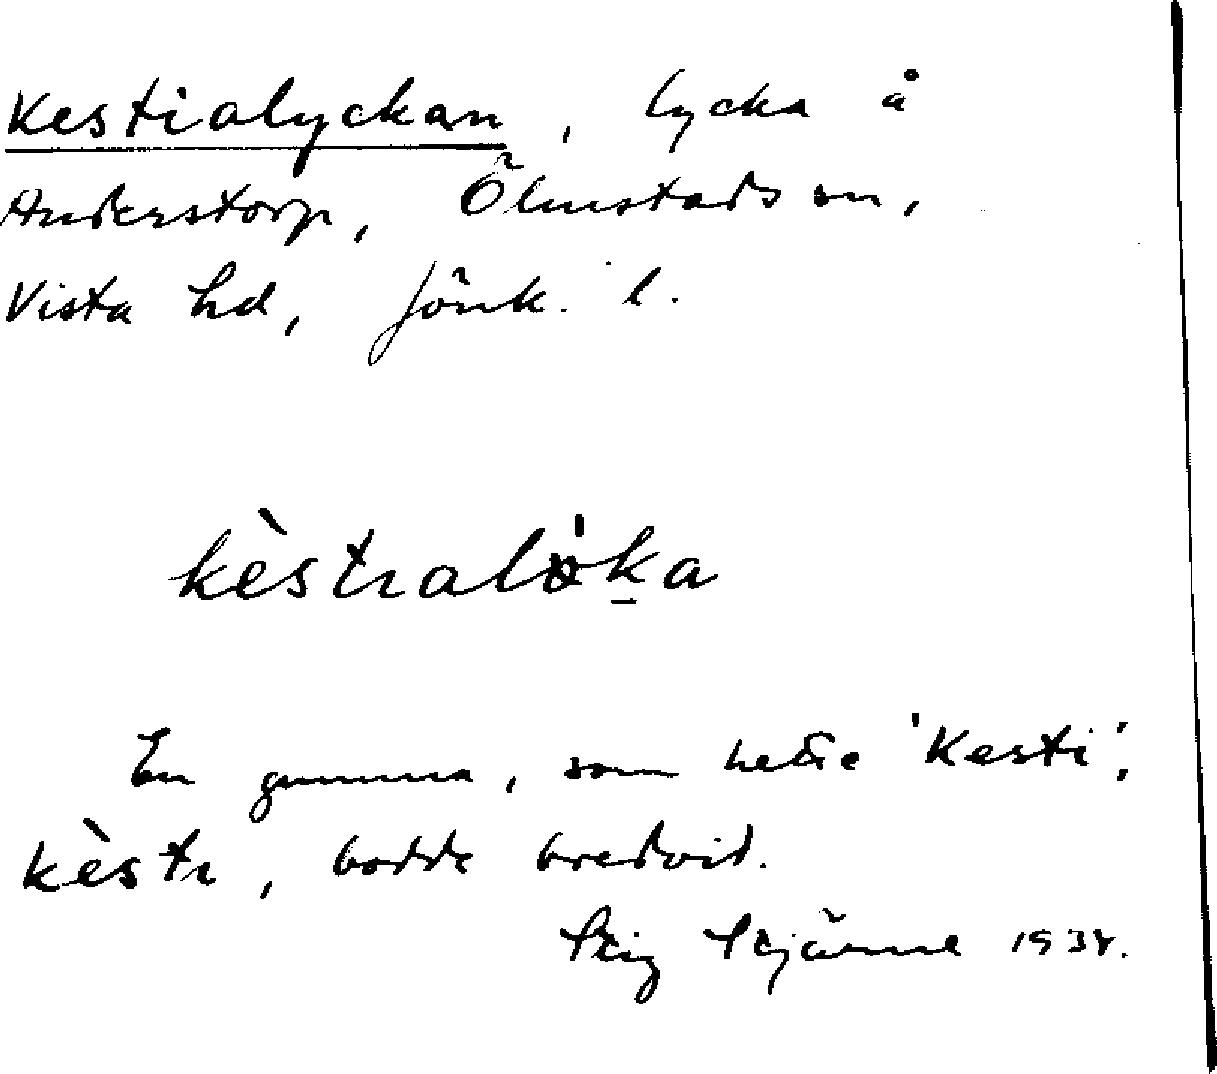 Kestialyckan, lycka å
Anderstorp, Ölmstads sn,
Vista hd, Jönk. l.
kèstɩalø̀k̠a
En gumma, som hette 'Kesti',
kèstɩ, bodde bredvid.
Stig Stjärne 1934.